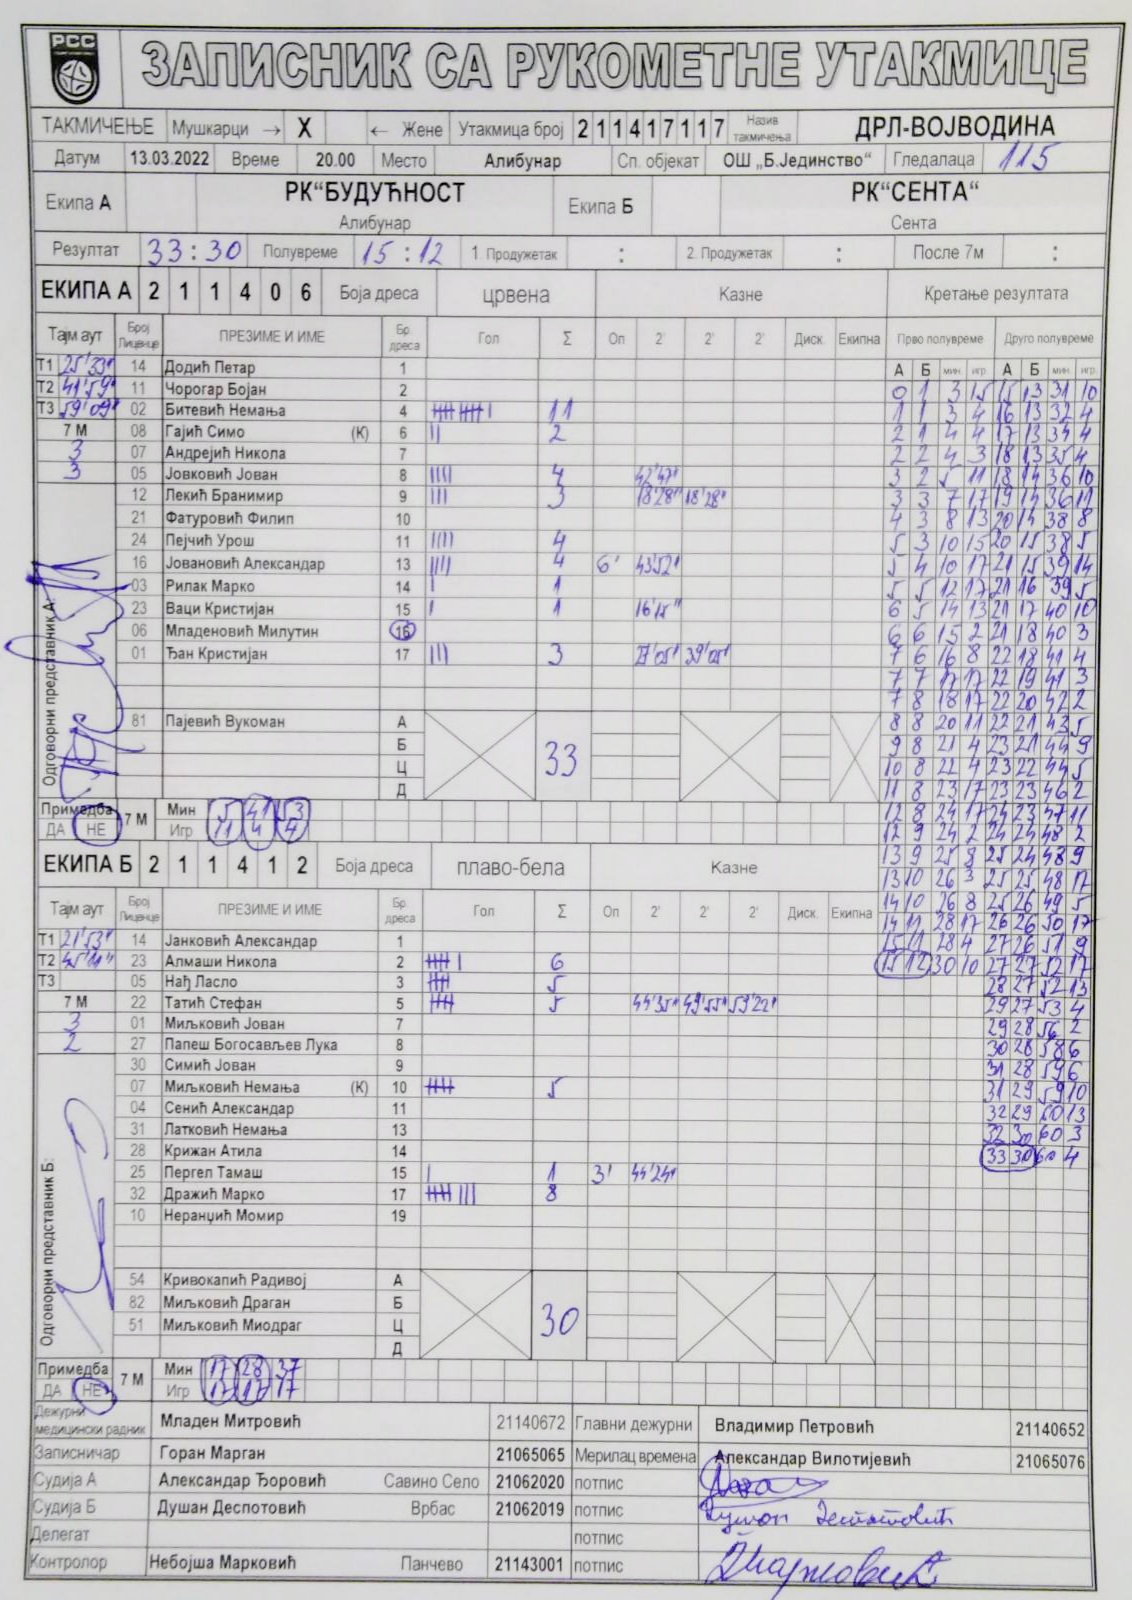 РСС
ЗАПИСНИК СА РУКОМЕТНЕ УТАКМИЦЕ
ТАКМИЧЕЊЕ Мушкарци → X ← Жене Утакмица број 211417117 Назив такмичења ДРЛ-ВОЈВОДИНА
Датум 13.03.2022 Време 20.00 Место Алибунар Сп. објекат ОШ „Б.Јединство“ Гледалаца 115
Екипа А РК“БУДУЋНОСТ Алибунар Екипа Б РК“СЕНТА“ Сента
Резултат 33:30 Полувреме 15:12 1. Продужетак : 2. Продужетак : После 7м :
ЕКИПА А 2 1 1 4 0 6 Боја дреса црвена Казне Кретање резултата
Тајм аут Број Лиценце ПРЕЗИМЕ И ИМЕ Бр. дреса Гол Σ Оп 2' 2' 2' Диск. Екипна Прво полувреме Друго полувреме
А Б мин. игр. А Б мин. игр.
Т1 25'33" 14 Додић Петар 1
Т2 41'59" 11 Чорогар Бојан 2
Т3 59'09" 02 Битевић Немања 4 11
7 М 08 Гајић Симо (К) 6 2
3 07 Андрејић Никола 7
3 05 Јовковић Јован 8 4 42'47"
12 Лекић Бранимир 9 3 18'28" 18'28"
21 Фатуровић Филип 10
24 Пејчић Урош 11 4
16 Јовановић Александар 13 4 6' 43'52"
03 Рилак Марко 14 1
23 Ваци Кристијан 15 1
06 Младеновић Милутин 16
01 Ђан Кристијан 17 3 39'05"
81 Пајевић Вукоман А
Б
Ц
Д
33
Одговорни представник А:
Примедба ДА НЕ 7 М Мин 5 41 53
Игр 11 4 4
ЕКИПА Б 2 1 1 4 1 2 Боја дреса плаво-бела Казне
Тајм аут Број Лиценце ПРЕЗИМЕ И ИМЕ Бр. дреса Гол Σ Оп 2' 2' 2' Диск. Екипна
Т1 21'53" 14 Јанковић Александар 1
Т2 45'11" 23 Алмаши Никола 2 6
Т3 05 Нађ Ласло 3 5
7 М 22 Татић Стефан 5 5 44'35" 49'55" 59'22"
3 01 Миљковић Јован 7
2 27 Папеш Богосављев Лука 8
30 Симић Јован 9
07 Миљковић Немања (К) 10 5
04 Сенић Александар 11
31 Латковић Немања 13
28 Крижан Атила 14
25 Пергел Тамаш 15 1 3' 44'24"
32 Дражић Марко 17 8
10 Неранџић Момир 19
54 Кривокапић Радивој А
82 Миљковић Драган Б
51 Миљковић Миодраг Ц
Д
30
Одговорни представник Б:
Примедба ДА НЕ 7 М Мин 17 28 37
Игр 17 17 17
0 1 3 15 15 13 31 10
1 1 3 4 16 13 32 4
2 1 4 4 17 13 34 4
2 2 4 3 18 13 35 4
3 2 5 11 18 14 36 10
3 3 7 17 19 14 36 11
4 3 8 13 20 14 38 8
5 3 10 15 20 15 38 5
5 4 10 17 21 15 39 14
5 5 12 17 21 16 39 5
6 5 14 13 21 17 40 10
6 6 15 2 21 18 40 3
7 6 16 8 22 18 41 4
7 7 17 17 22 19 41 3
7 8 18 17 22 20 42 2
8 8 20 11 22 21 43 5
9 8 21 4 23 21 44 9
10 8 22 4 23 22 44 5
11 8 23 17 23 23 46 2
12 8 24 17 24 23 47 11
12 9 24 2 24 24 48 2
13 9 25 8 25 24 48 9
13 10 26 3 25 25 48 17
14 10 26 8 25 26 49 5
14 11 28 17 26 26 50 17
15 11 28 4 27 26 51 9
15 12 30 10 27 27 52 17
28 27 52 13
29 27 53 4
29 28 56 2
30 28 58 6
31 28 59 6
31 29 59 10
32 29 60 13
32 30 60 3
33 30 60 4
Дежурни медицински радник Младен Митровић 21140672 Главни дежурни Владимир Петровић 21140652
Записничар Горан Марган 21065065 Мерилац времена Александар Вилотијевић 21065076
Судија А Александар Ђоровић Савино Село 21062020 потпис
Судија Б Душан Деспотовић Врбас 21062019 потпис Душан Деспотовић
Делегат потпис
Контролор Небојша Марковић Панчево 21143001 потпис